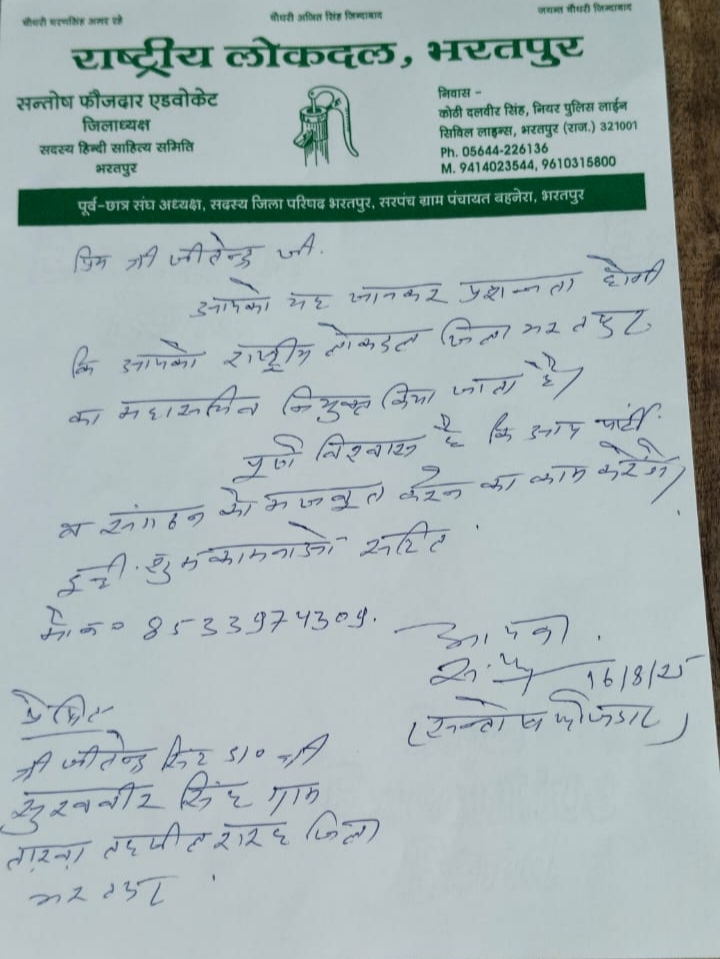 चौधरी चरणसिंह अमर रहे
चौधरी अजित सिंह जिन्दाबाद
जयन्त चौधरी जिन्दाबाद
राष्ट्रीय लोकदल, भरतपुर
सन्तोष फौजदार एडवोकेट
जिलाध्यक्ष
सदस्य हिन्दी साहित्य समिति
भरतपुर
निवास -
कोठी दलवीर सिंह, नियर पुलिस लाईन
सिविल लाइन्स, भरतपुर (राज.) 321001
Ph. 05644-226136
M. 9414023544, 9610315800
पूर्व-छात्र संघ अध्यक्ष, सदस्य जिला परिषद भरतपुर, सरपंच ग्राम पंचायत बहनेरा, भरतपुर
प्रिय श्री जीतेन्द्र जी.
आपको यह जानकर प्रशन्नता होगी
कि आपको राष्ट्रीय लोकदल जिला भरतपुर
का महासचिव नियुक्त किया जाता है।
पूर्ण विश्वास है कि आप पार्टी
व संगठन को मजबूत करने का काम करेंगे।
इन्ही शुभकामनाओं सहित
मो० न० 8533974309.
आपका.
16/8/25
(सन्तोष फौजदार)
प्रेषित
श्री जीतेन्द्र सिंह S/० श्री
सुखवीर सिंह ग्राम
तहसील जिला
भरतपुर